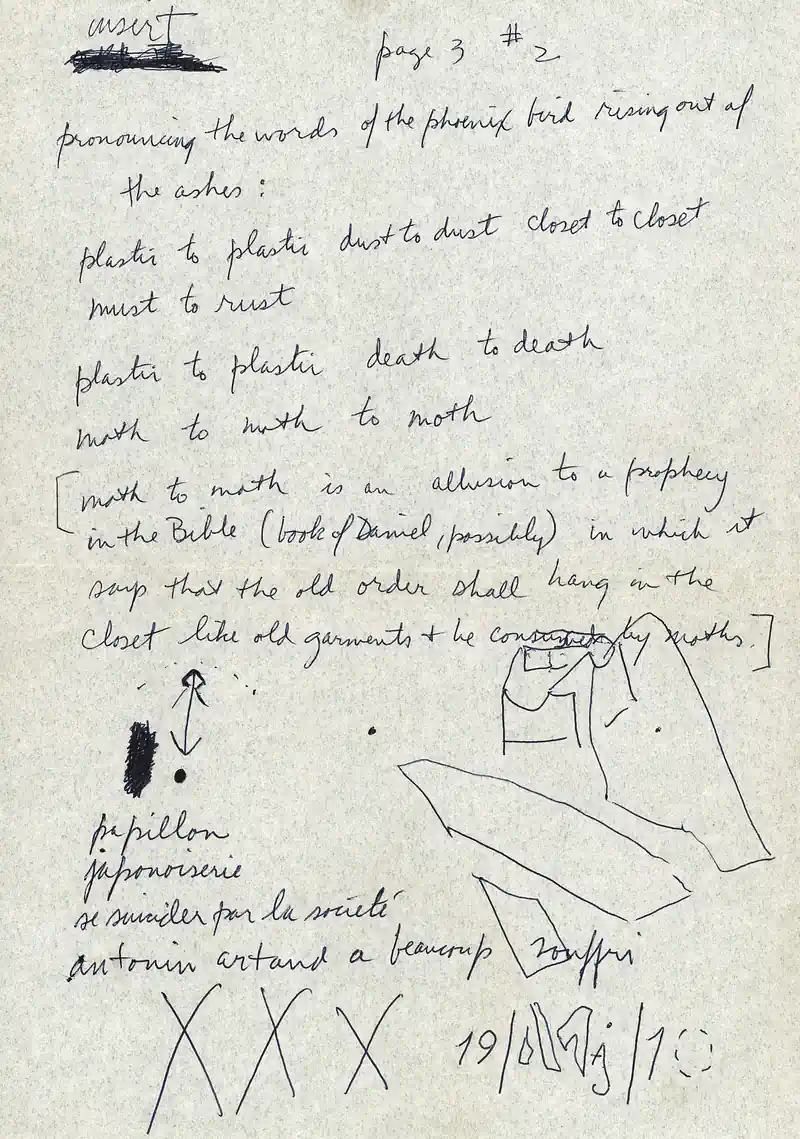 insert
page 3 #2
pronouncing the words of the phoenix bird rising out of
the ashes:
plastic to plastic dust to dust closet to closet
must to rust
plastic to plastic death to death
moth to moth to moth
[moth to moth is an allusion to a prophecy
in the Bible (book of Daniel, possibly) in which it
says that the old order shall hang in the
closet like old garments & be consumed by moths.]
papillon
japonoiserie
se suicider par la société
antonin artaud a beaucoup souffri
XXX 19/